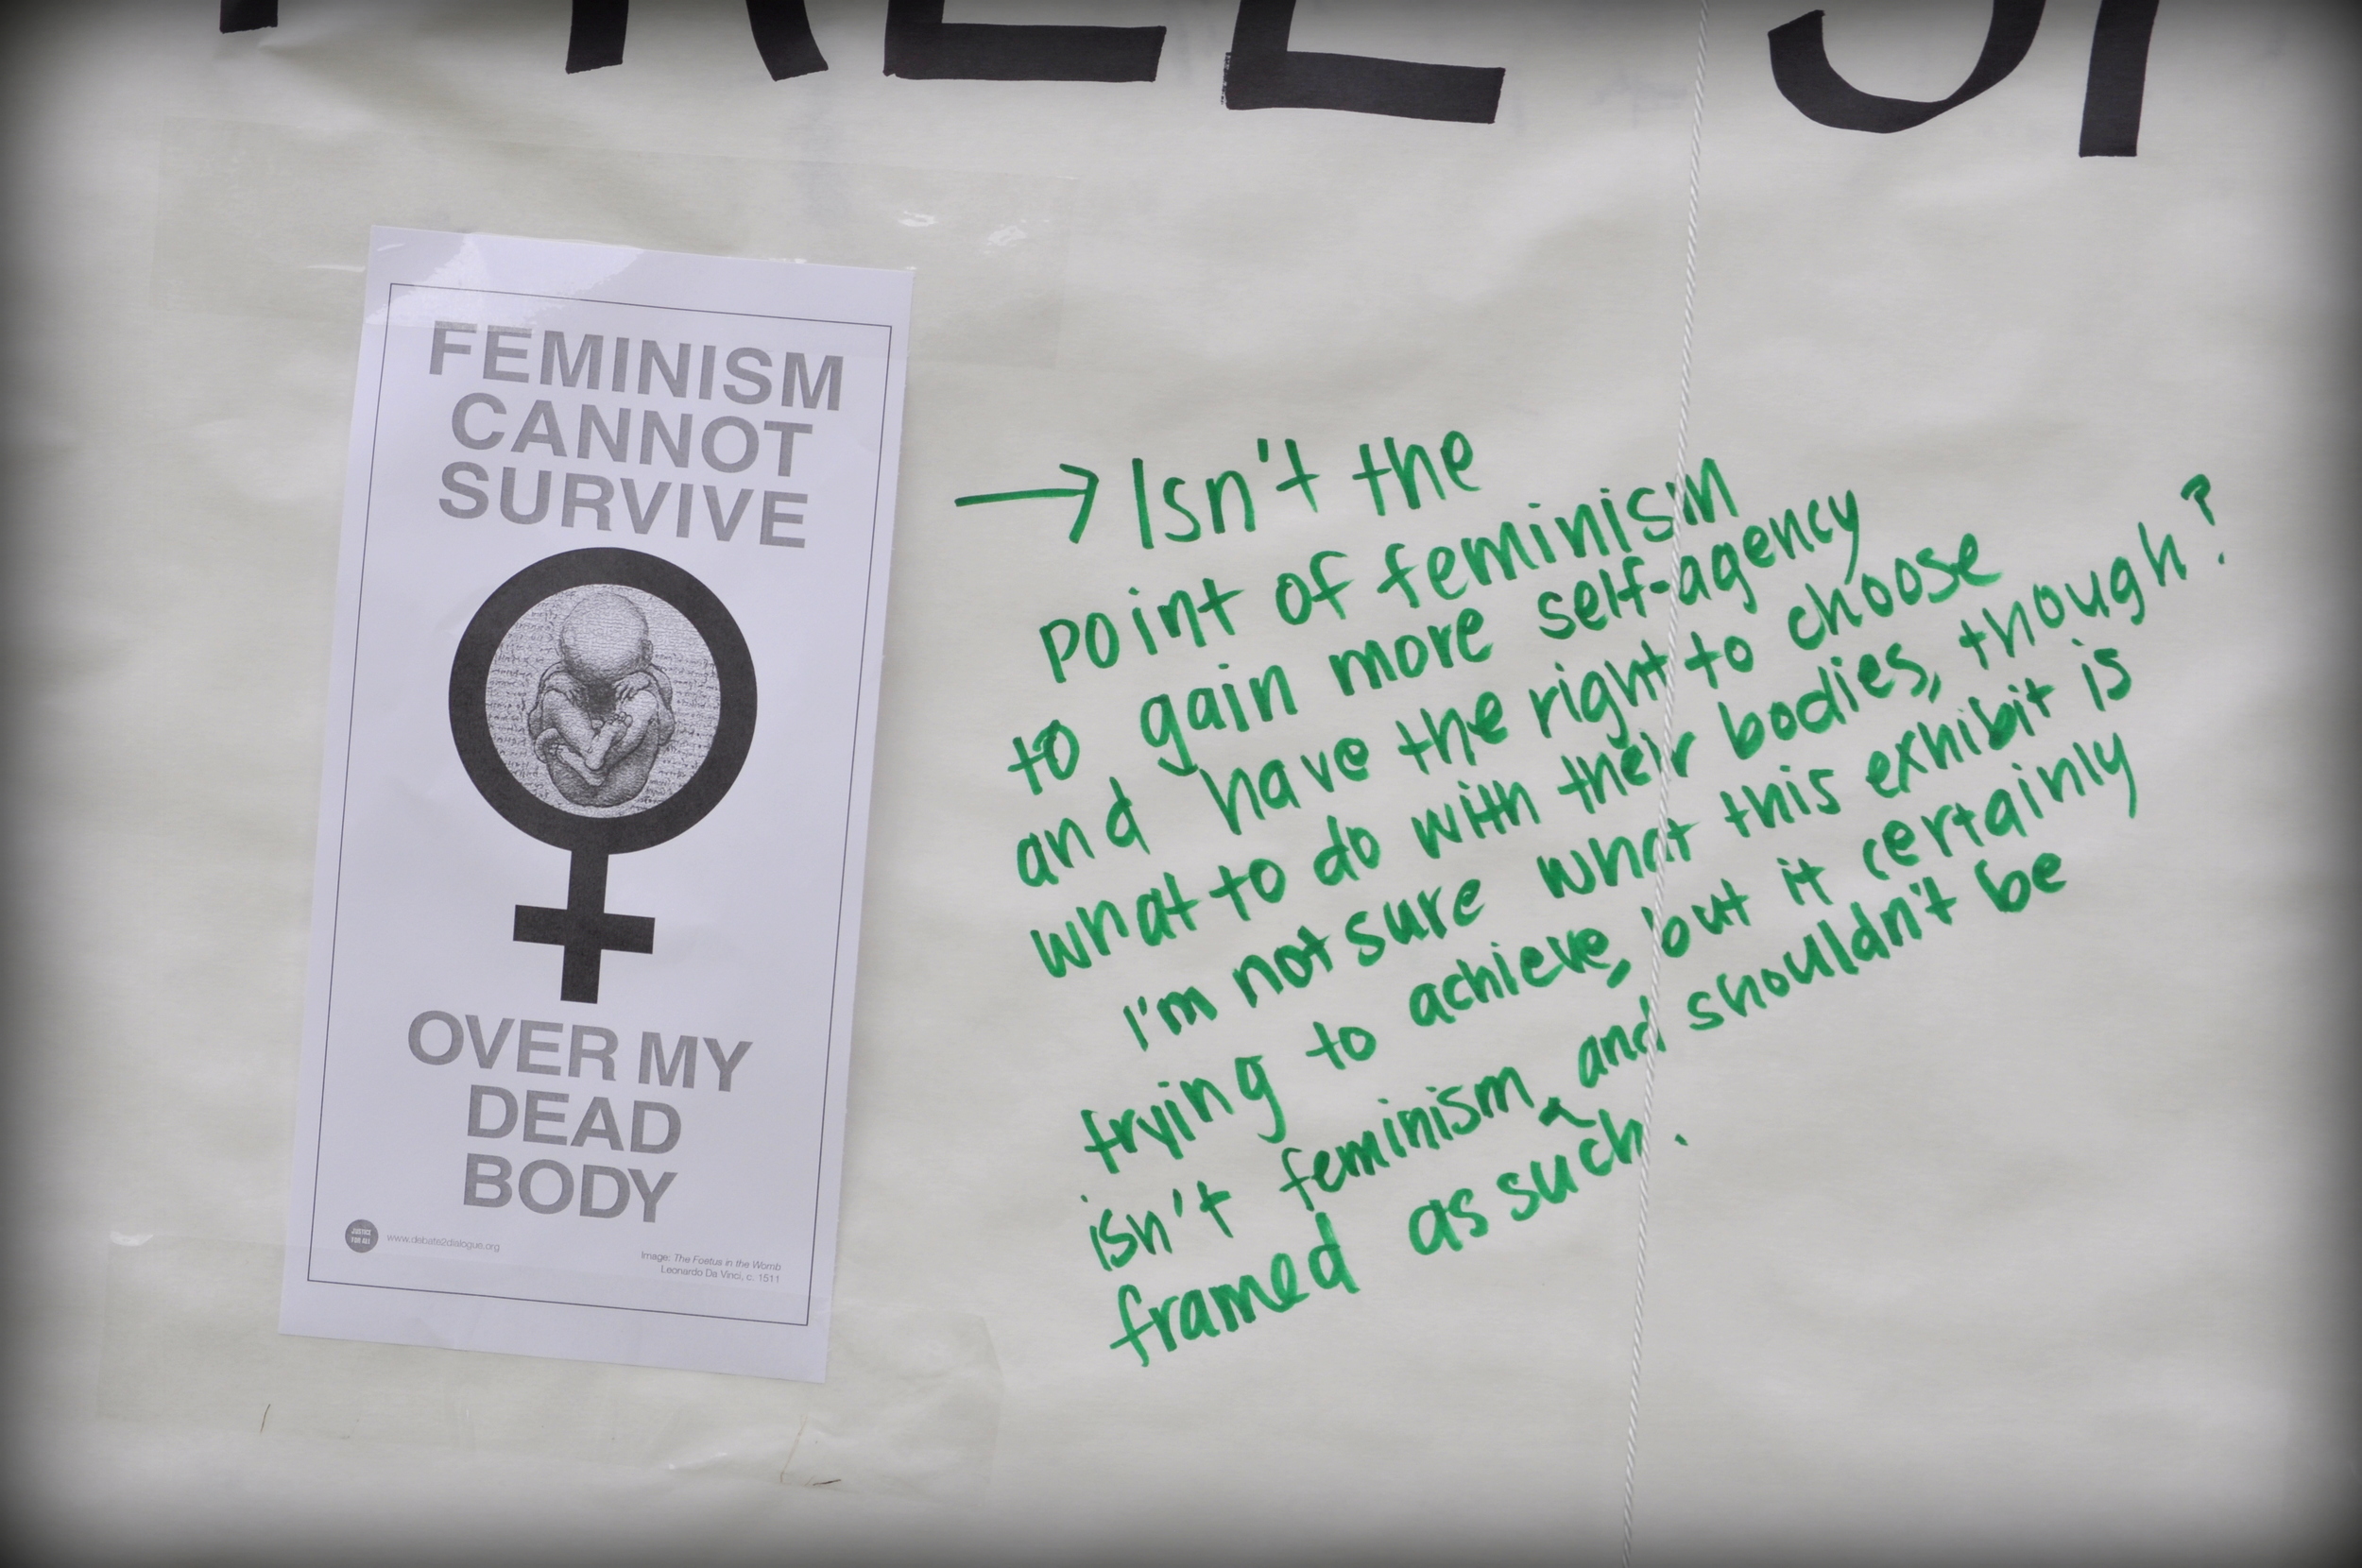 FEMINISM
CANNOT
SURVIVE
OVER MY
DEAD
BODY
JUSTICE
FOR ALL
www.debate2dialogue.org
Image: The Foetus in the Womb
Leonardo Da Vinci, c. 1511
→ Isn't the
point of feminism
to gain more self-agency
and have the right to choose
what to do with their bodies, though?
I'm not sure what this exhibit is
trying to achieve, but it certainly
isn't feminism and shouldn't be
framed as such.